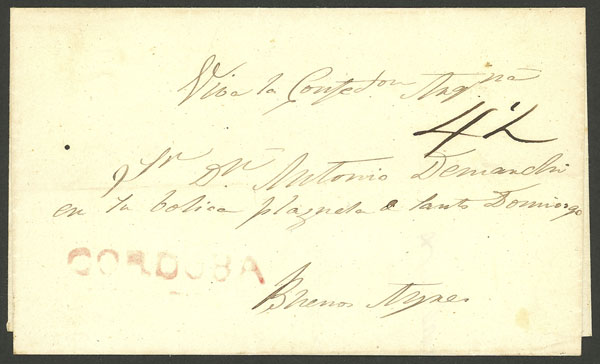 Viva la Confedon Argna
4½
Sr Dn Antonio Demarchi
en la botica plazueta de Santo Domingo
CORDOBA
Buenos Ayres